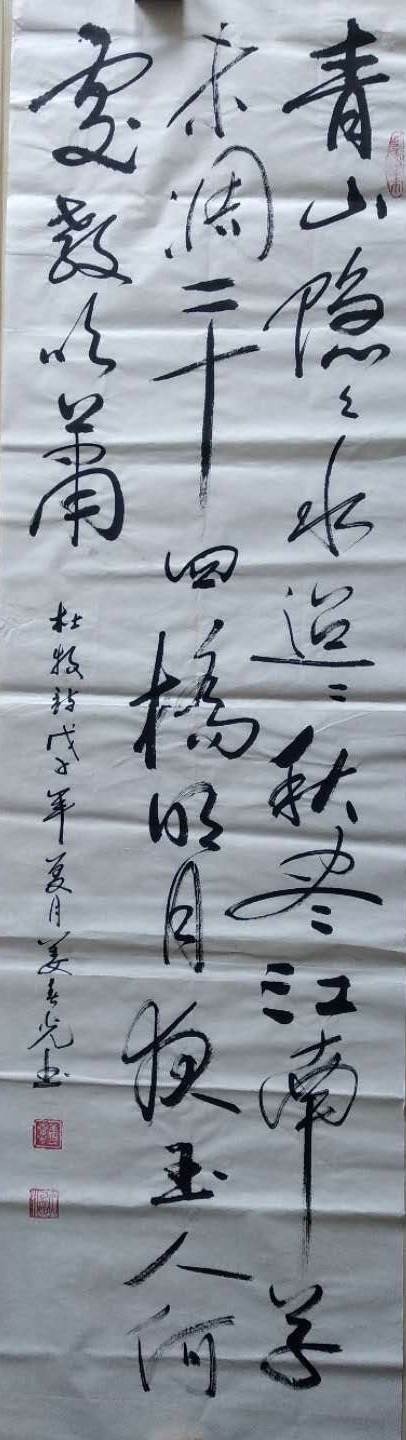 青山隐々水迢〻秋尽江南草
未凋二十四橋明月夜玉人何
處教吹蕭
杜牧詩戊子年夏月姜春光书